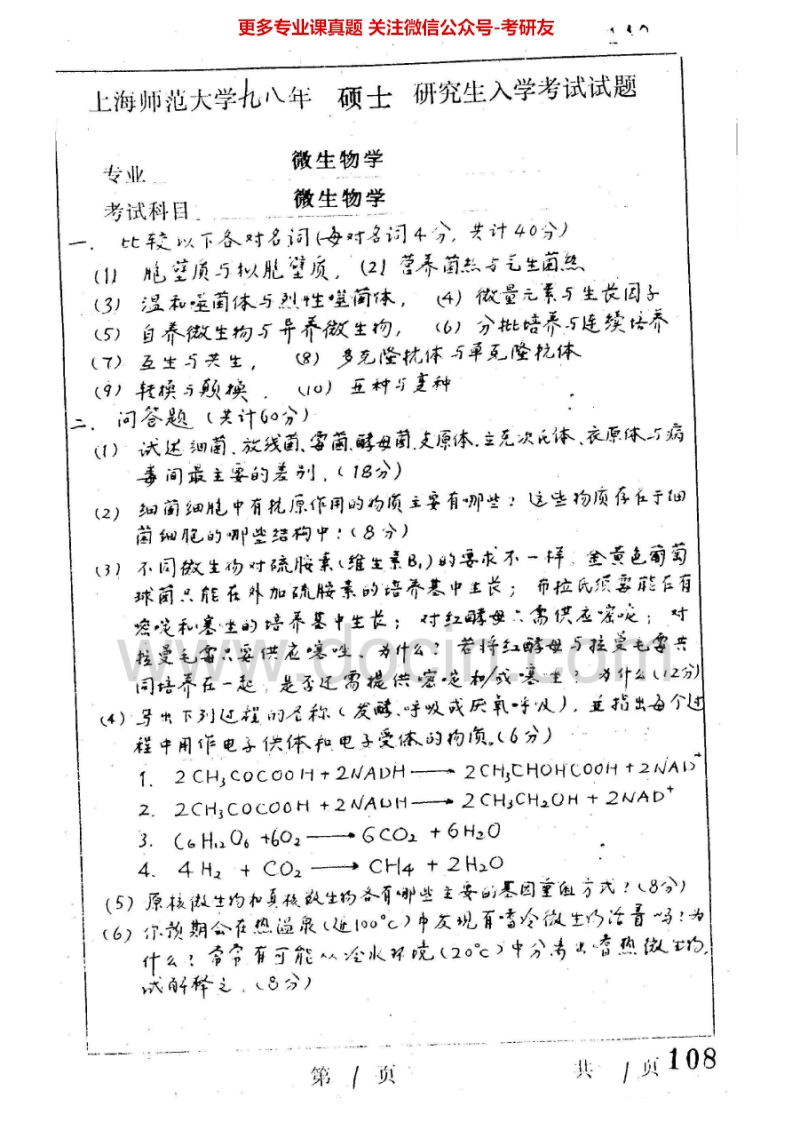 更多专业课真题 关注微信公众号-考研友
上海师范大学九八年 硕士 研究生入学考试试题
专业 微生物学
考试科目 微生物学
一. 比较以下各对名词(每对名词4分,共计40分)
(1) 胞壁质与拟胞壁质, (2) 营养菌丝与气生菌丝
(3) 温和噬菌体与烈性噬菌体, (4) 微量元素与生长因子
(5) 自养微生物与异养微生物, (6) 分批培养与连续培养
(7) 互生与共生, (8) 多克隆抗体与单克隆抗体
(9) 转换与颠换. (10) 亚种与变种
二. 问答题(共计60分)
(1) 试述细菌、放线菌、霉菌、酵母菌、支原体、立克次氏体、衣原体与病
毒间最主要的差别.(18分)
(2) 细菌细胞中有抗原作用的物质主要有哪些?这些物质存在于细
菌细胞的哪些结构中?(8分)
(3) 不同微生物对硫胺素(维生素B₁)的要求不一样. 金黄色葡萄
球菌只能在外加硫胺素的培养基中生长; 布拉氏须霉能在有
嘧啶和噻唑的培养基中生长; 对红酵母只需供应嘧啶; 对
拉曼毛霉只要供应噻唑、为什么?若将红酵母与拉曼毛霉共
同培养在一起,是否还需提供嘧啶和/或噻唑?为什么(12分)
(4) 写出下列过程的名称(发酵、呼吸或厌氧呼吸),并指出每个过
程中用作电子供体和电子受体的物质。(6分)
1. 2CH₃COCOOH + 2NADH → 2CH₃CHOHCOOH + 2NAD⁺
2. 2CH₃COCOOH + 2NADH → 2CH₃CH₂OH + 2NAD⁺
3. C₆H₁₂O₆ + 6O₂ → 6CO₂ + 6H₂O
4. 4H₂ + CO₂ → CH₄ + 2H₂O
(5) 原核微生物和真核微生物各有哪些主要的基因重组方式?(8分)
(6) 你预期会在热温泉(近100°C)中发现有嗜冷微生物活着吗?为
什么?常常有可能从冷水环境(20°C)中分离出嗜热微生物,
试解释之.(8分)
www.docin.com
第 1 页 共 1 页 108